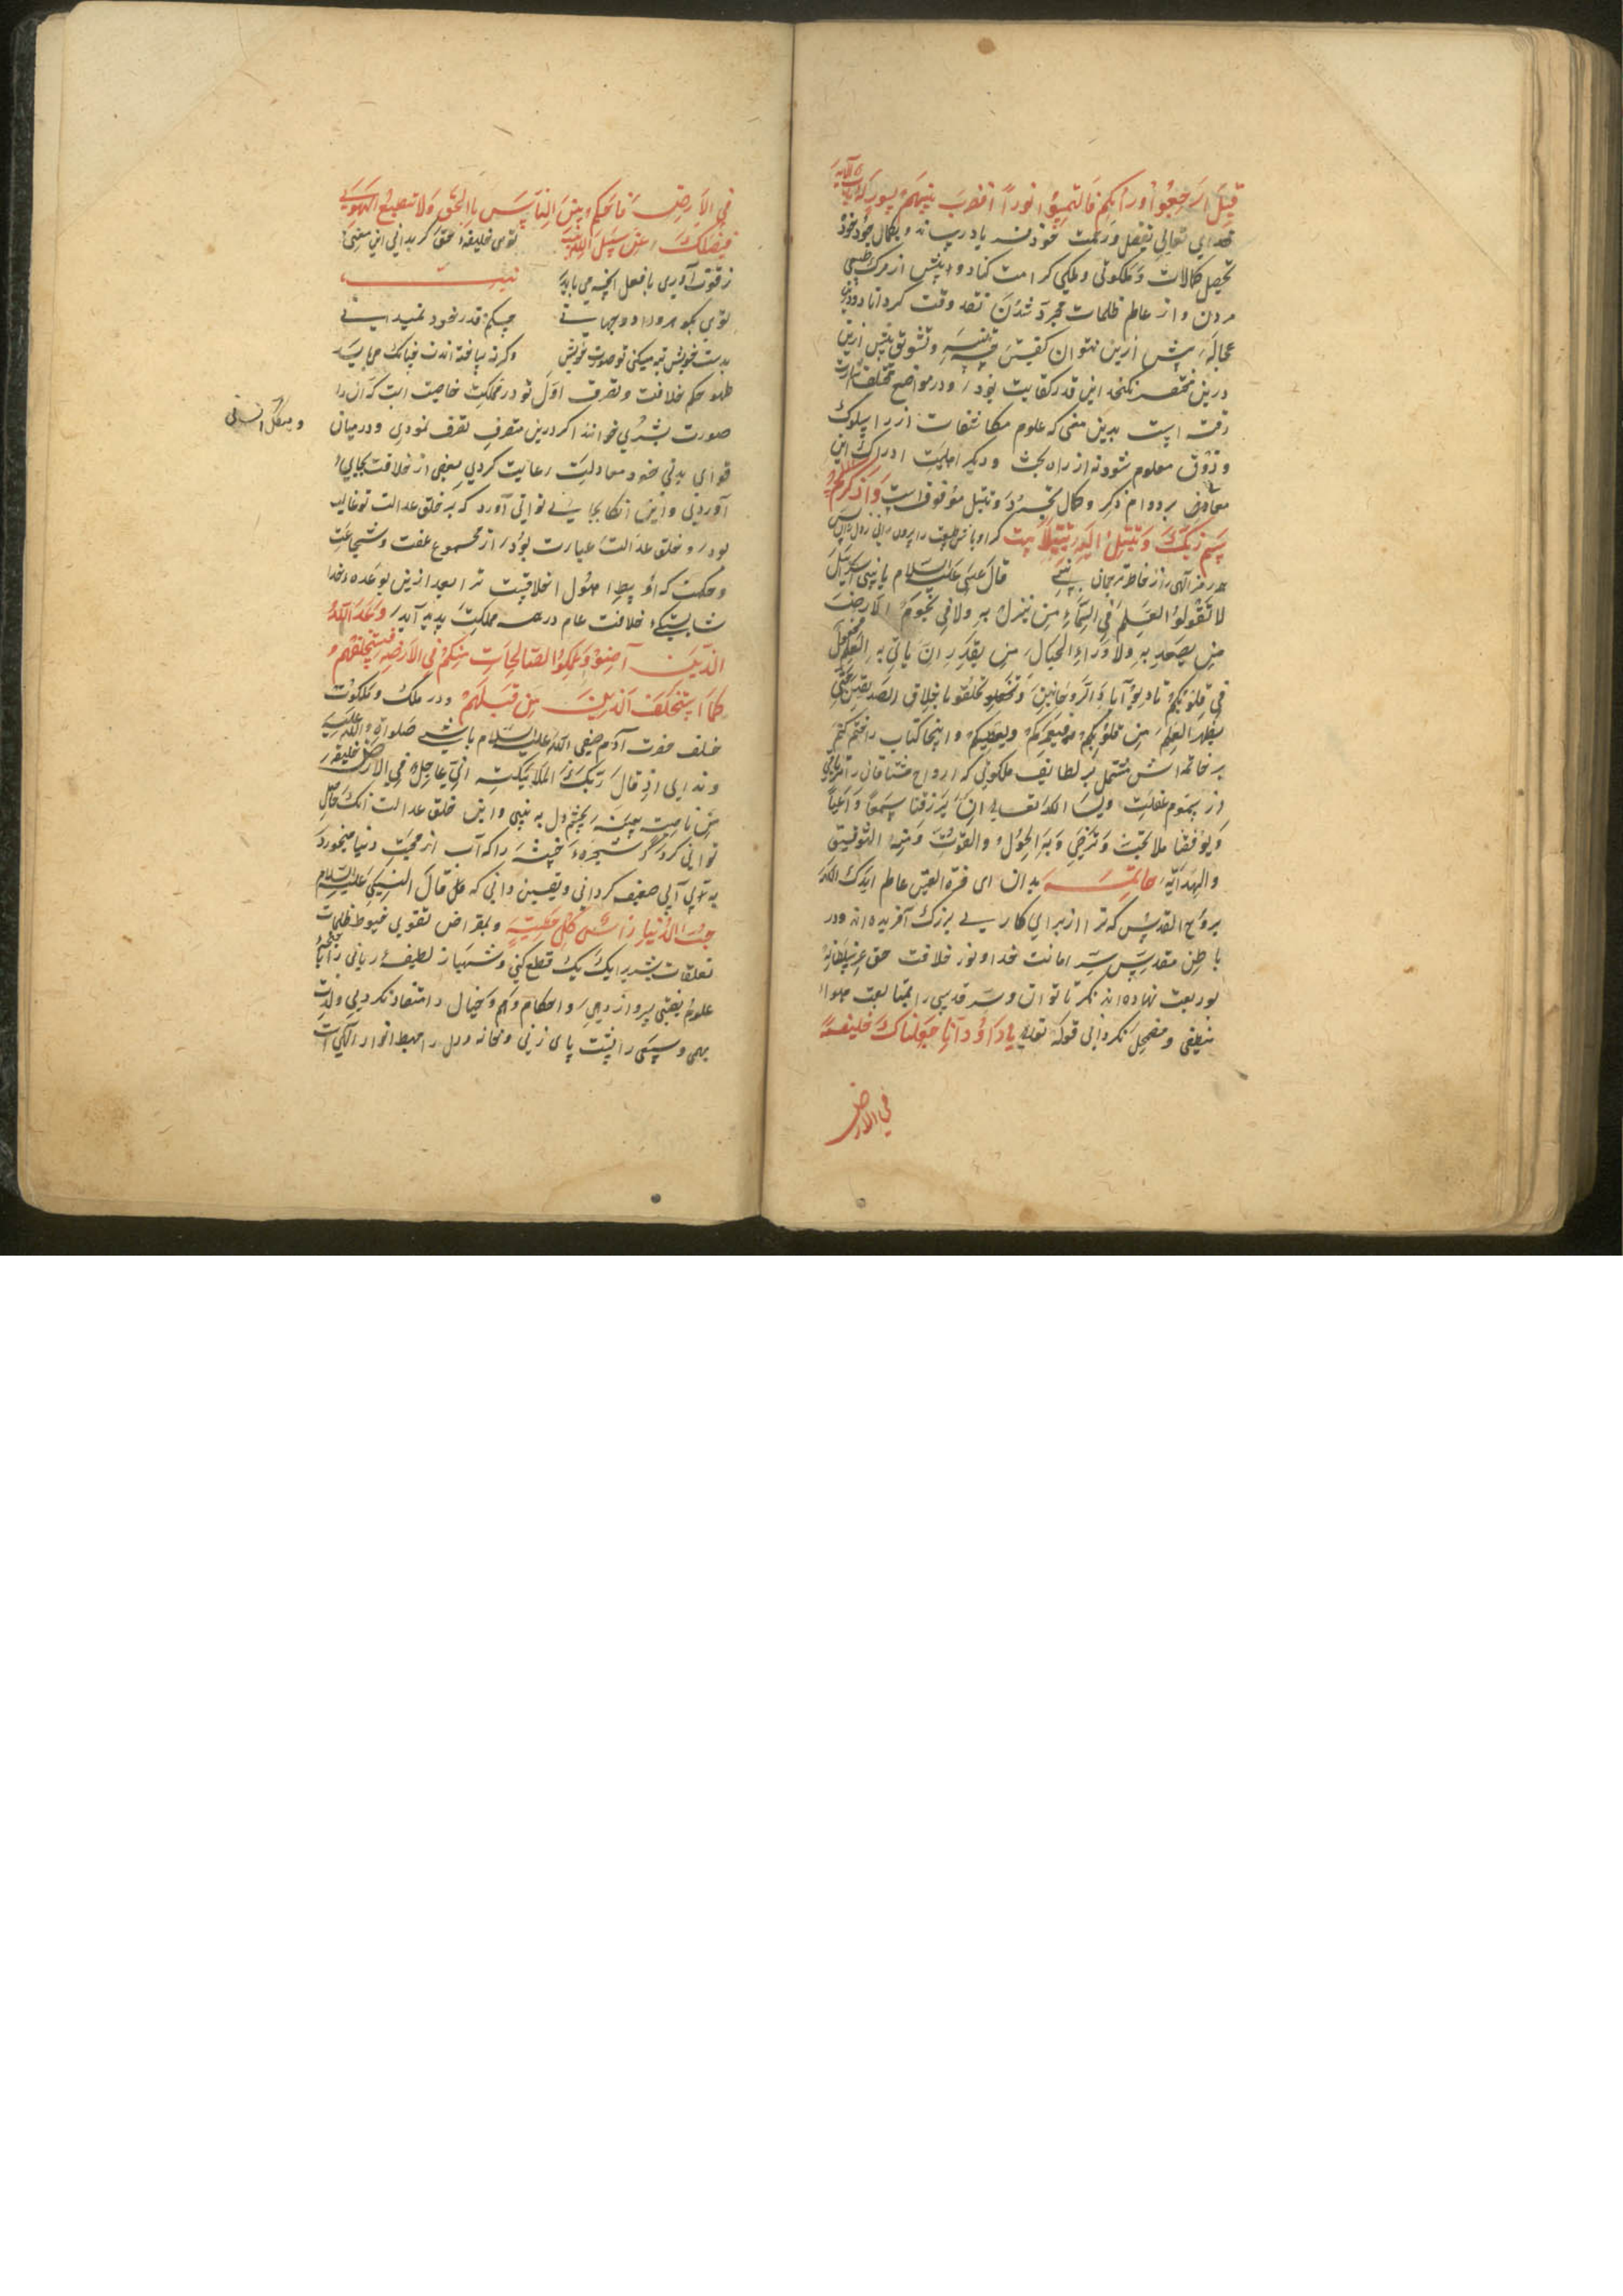 قِیلَ ارْجِعُوا وَراءَکُمْ فَالْتَمِسُوا نوراً فَضُرِبَ بَیْنَهُمْ بِسُورٍ لَهُ بابٌ الآیه
خدای تعالی بفضل ورحمت خود بدان درساند وبکمال جود خود
تحصیل کمالات ملکوتی وملکی کرامت کناد وپیش از مرک طبیعی
مردن واز عالم ظلمات مجرد شدن نقد وقت کرداناد ودرین
عجاله پیش ازین نتوان کفتن وتنبیه وتشویق بیش ازین
درین مختصر نکنجد این قدر کفایت بود ودر مواضع مختلف اشارت
رفته است بدین معنی که علوم مکاشفات از راه سلوک
وذوق معلوم شود نه از راه بحث ودیکر اهلیت ادراک این
معارف بر دوام ذکر وکمال تجرد وتبتل موقوفست وَاذْکُرِ
اسْمَ رَبِّکَ وَتَبَتَّلْ اِلَیْهِ تَبْتیلاً بیت
قال عیسی علیه السلام یا بنی اسرائیل
لا تقولوا العلم فی السماء من ینزل به ولا فی تخوم الارض
من یصعد به ولا وراء الجبال من یقدر ان یأتی به العلم مجعول
فی قلوبکم تادبوا بآداب الروحانیین وتخلقوا باخلاق الصدیقین حتی
یظهر العلم من قلوبکم ویعطیکم واینجا کتاب را ختم کنیم
بر خاتمه اش مشتمل بر لطایف ملکوتی که ارواح مشتاقان را
از هجوم غفلت ونسأل الله تعالی ان یرزقنا سمعاً واعیاً
ویوفقنا لما یحب ویرضی وبه الحول والقوت ومنه التوفیق
والهدایه خاتمه بدان ای قرة العین عالم ایدک الله
بروح القدس که ترا از برای کاری بزرک آفریده اند ودر
باطن مقدس سر امانت خداوند وخلافت حق عز سلطانه
بودیعت نهاده اند نکر تا توان وسر قدسی را بمتابعت هوا
منطفی ومضمحل نکردانی قوله تعالی یا داوُدُ اِنّا جَعَلْناکَ خَلیفَةً
فی الارض
فی الاَرضِ فَاحْکُمْ بَیْنَ النّاسِ بِالْحَقِّ وَلا تَتَّبِعِ الْهَوی
فَیُضِلَّکَ عَنْ سَبیلِ اللهِ بیت توی خلیفهٔ حق کر بدانی این معنی
ز قوت آوری با فعل آنچه می باید
توی که جوهر ودر دو جهانی چکنم قدر خود نمیدانی
بدست خویش تبه میکنی تو صورت خویش وکرنه ساخته اندت چنانکه می باید
ظهور حکم خلافت وتصرف اول تو در مملکت خاصیت است که آن را
صورت بشری خوانند اکر درین متصرف تصرف نمودی ودر میان
ومیکل انسانی
قوای بدنی خود معدلت رعایت کردی بعضی از خلافت بجای
آوردی واین آنکاه بجای توانی آورد که بر خلق عدالت تو غالب
بود وخلق عدالت عبارت بود از مجموع عفت وشجاعت
وحکمت که اوسط اصول اخلاقیست ترا بعد ازین بوعده خدا
شایستکی خلافت عام در همه مملکت پدید آید وَعَدَ اللهُ
الَّذینَ آمَنُوا وَعَمِلُوا الصّالِحاتِ مِنْکُمْ فی الاَرْضِ لَیَسْتَخْلِفَنَّهُمْ
کَمَا اسْتَخْلَفَ الَّذینَ مِنْ قَبْلِهِمْ ودر ملک وملکوت
خلف حضرت آدم صفی الله علیه السلام باشی صلوات الله علیه
وندای اِذْ قالَ رَبُّکَ لِلْمَلائِکَةِ اِنّی جاعِلٌ فی الاَرْضِ خَلیفَة
بچشم دل به بینی واین خلق عدالت آنکه حاصل
توانی کرد که شجره خبیثه را که آب از محبت دنیا میخورد
به بی آبی ضعیف کردانی ویقین دانی که قال النبی علیه السلام
حُبُّ الدُّنیا رَأْسُ کُلِّ خَطیئَةٍ وبمقراض تقوی خیوط ظلمات
تعلقات بشریرا یک یک قطع کنی وشهباز لطیفه ربانی را
علوم یقینی پرواز دهی واحکام وهم وخیال را منقاد نکردی ولذت
بهیمی وسبعی را پشت پای زنی وخانه دل را مهبط انوار الهی